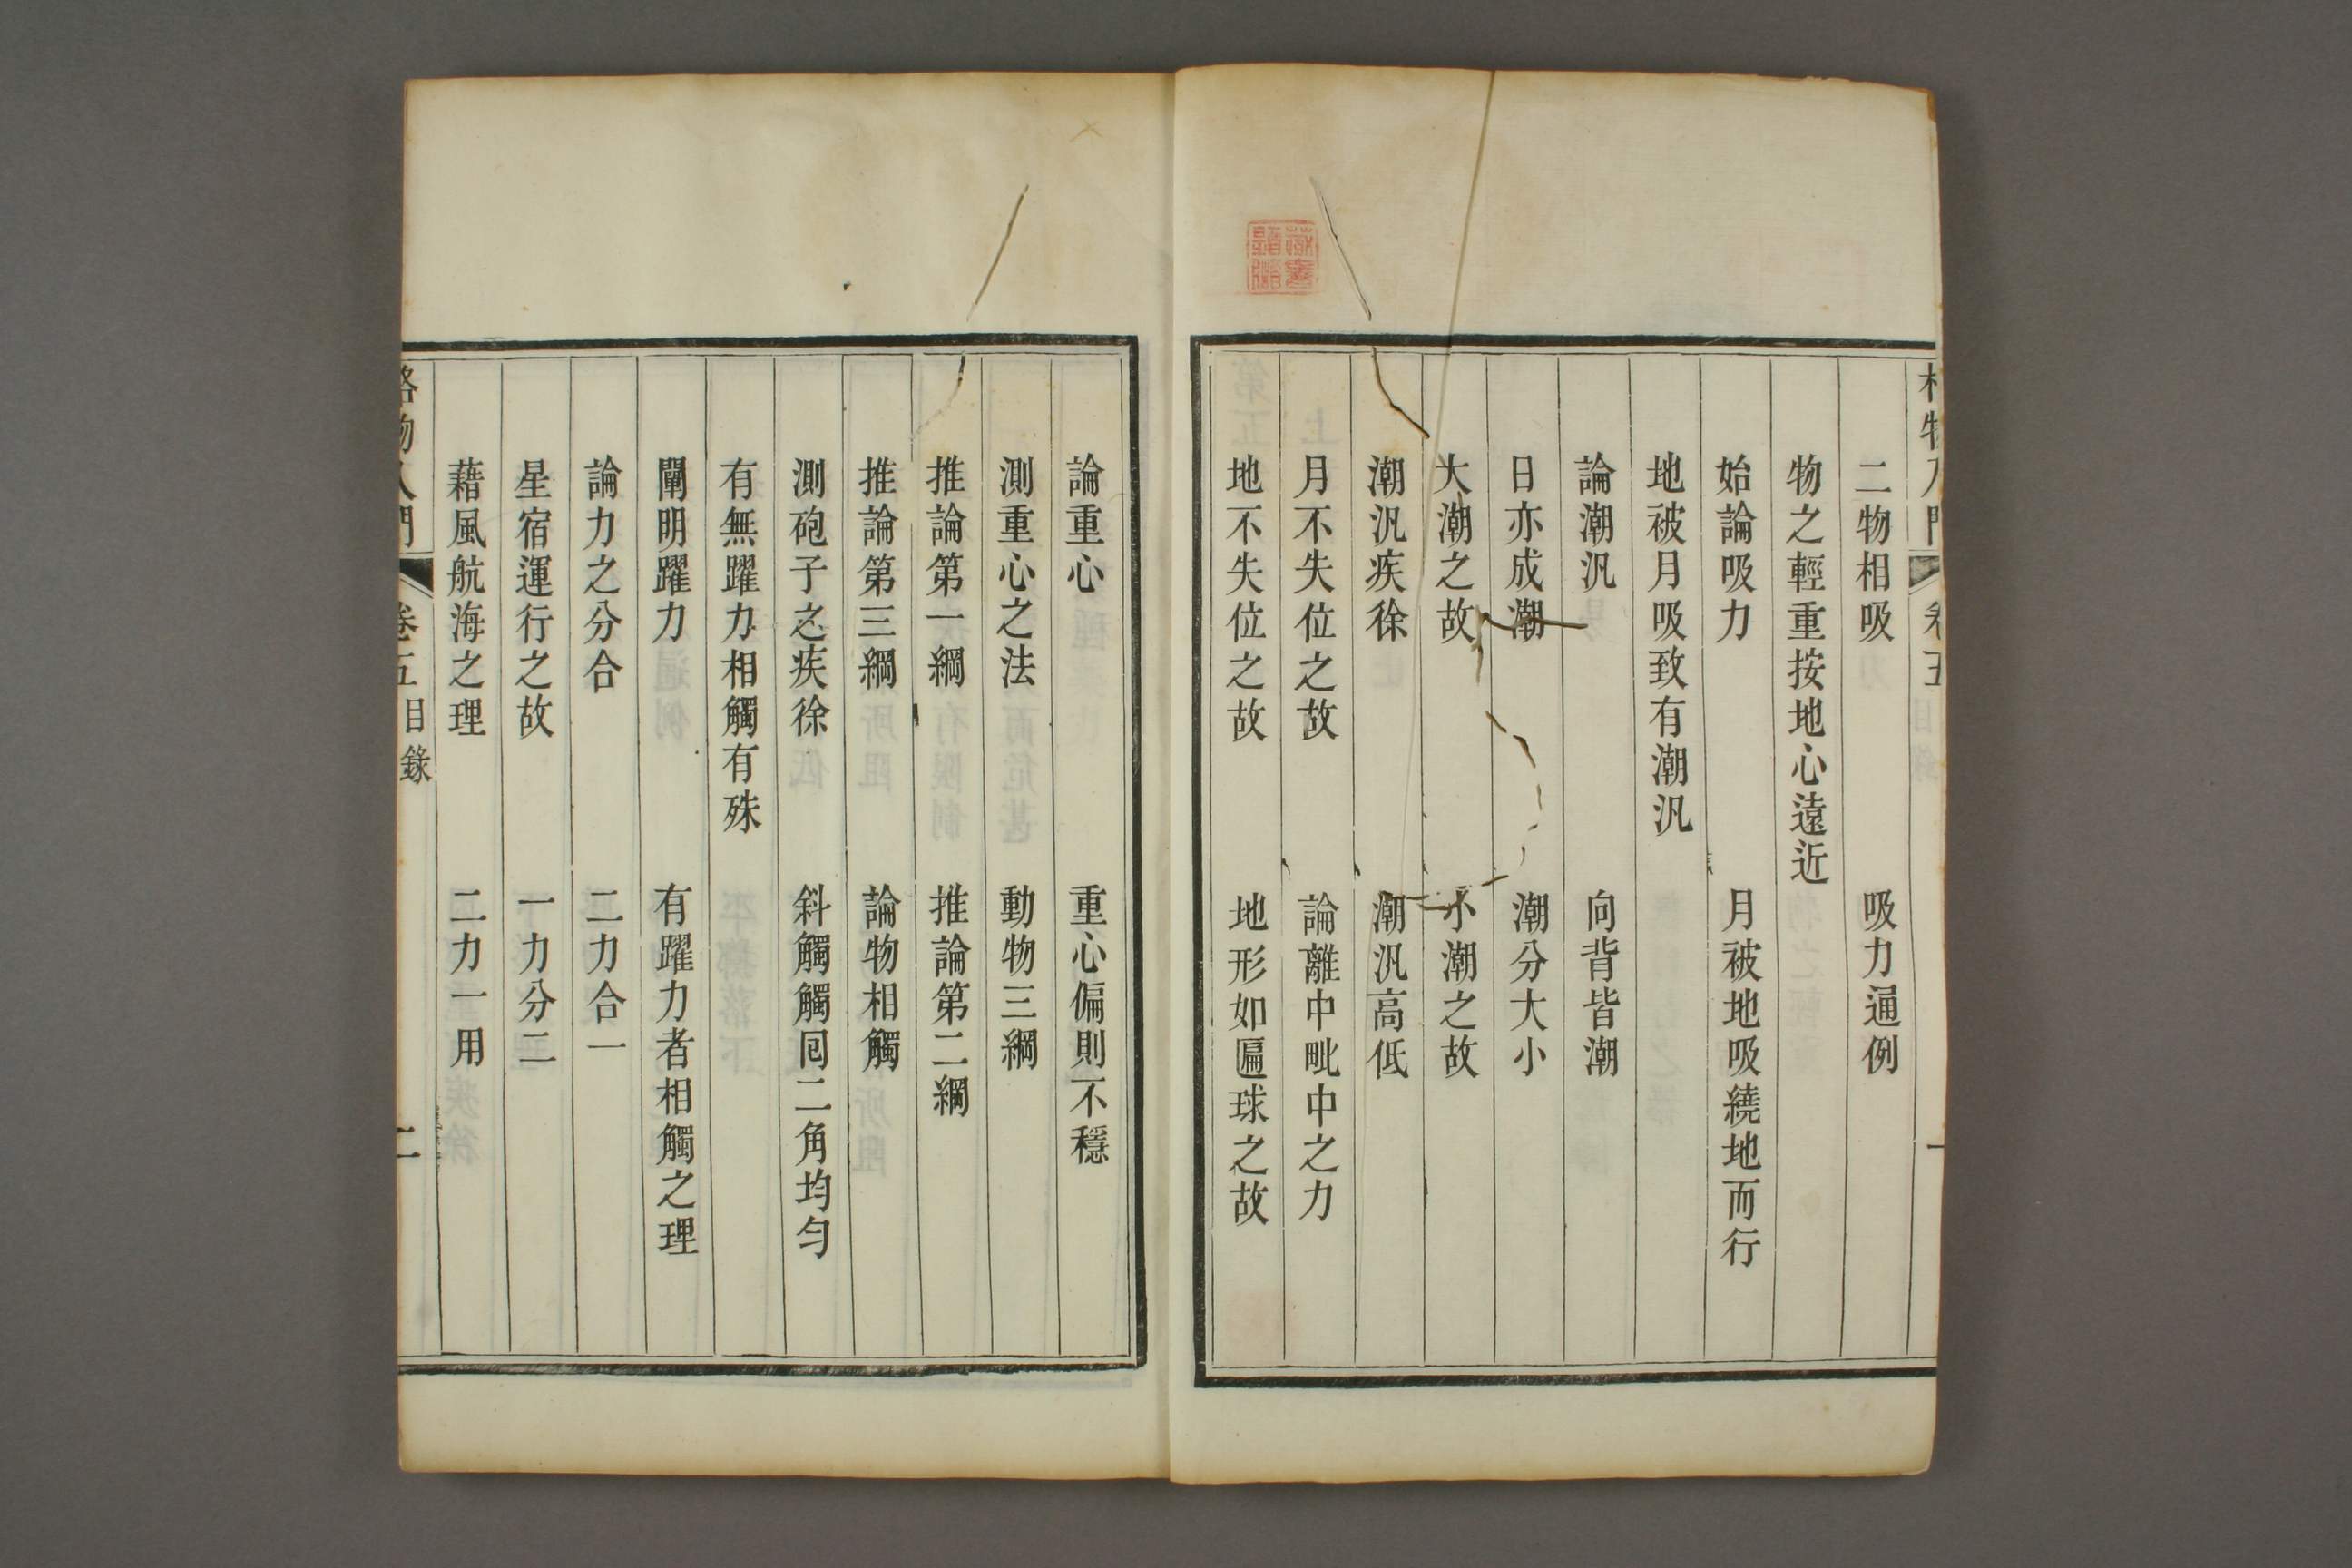 二物相吸　吸力通例
物之輕重按地心遠近
始論吸力　月被地吸繞地而行
地被月吸致有潮汎
論潮汎　向背皆潮
日亦成潮　潮分大小
大潮之故　小潮之故
潮汎疾徐　潮汎高低
月不失位之故　論離中毗中之力
地不失位之故　地形如匾球之故
論重心　重心偏則不穩
測重心之法　動物三綱
推論第一綱　推論第二綱
推論第三綱　論物相觸
測砲子之疾徐　斜觸觸囘二角均勻
有無躍力相觸有殊
闡明躍力　有躍力者相觸之理
論力之分合　二力合一
星宿運行之故　一力分二
藉風航海之理　二力一用
格物入門　卷五目錄　二